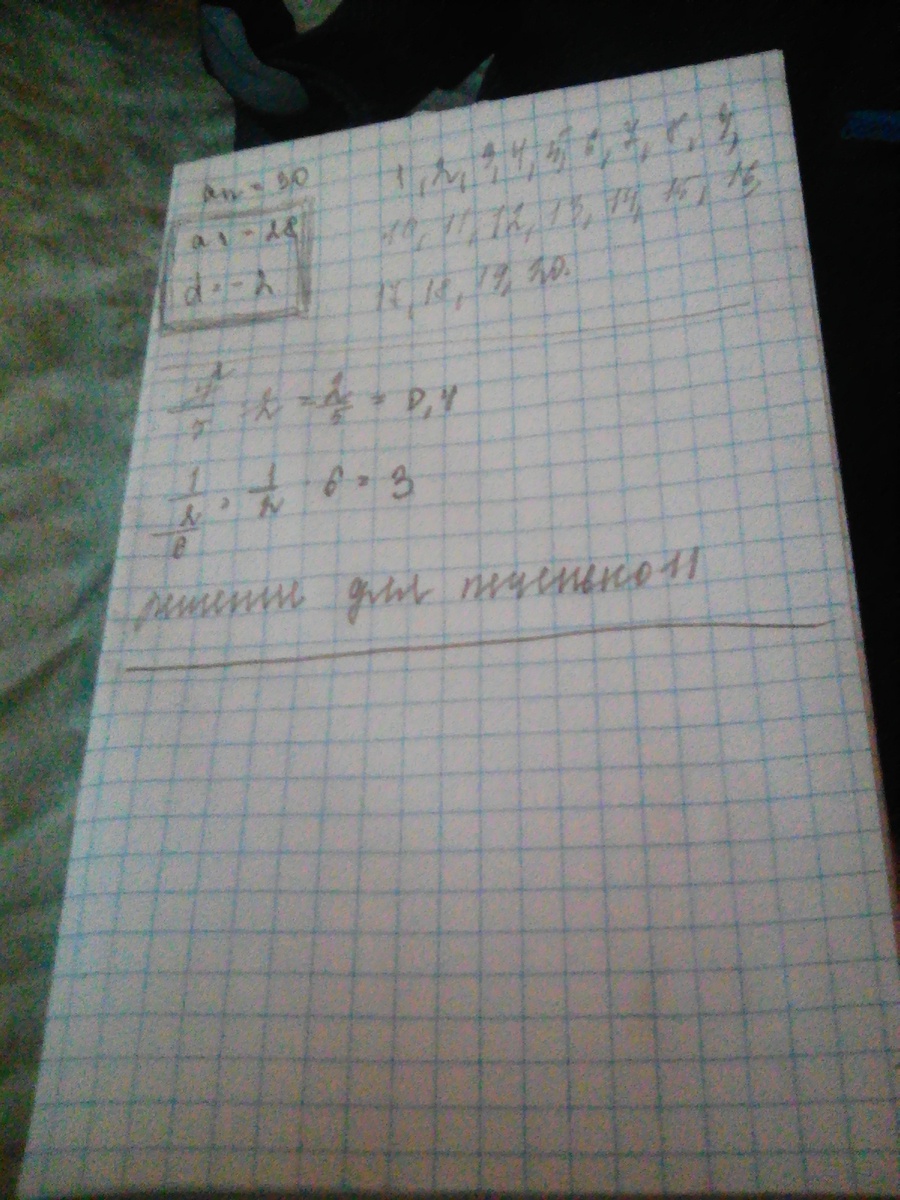 an = 30
a1 = 28
d = -2
1, 2, 3, 4, 5, 6, 7, 8, 9,
10, 11, 12, 13, 14, 15, 16,
17, 18, 19, 20.
4/5 : 2 = 2/5 = 0,4
1/(2/6) = 1/2 · 6 = 3
решение для